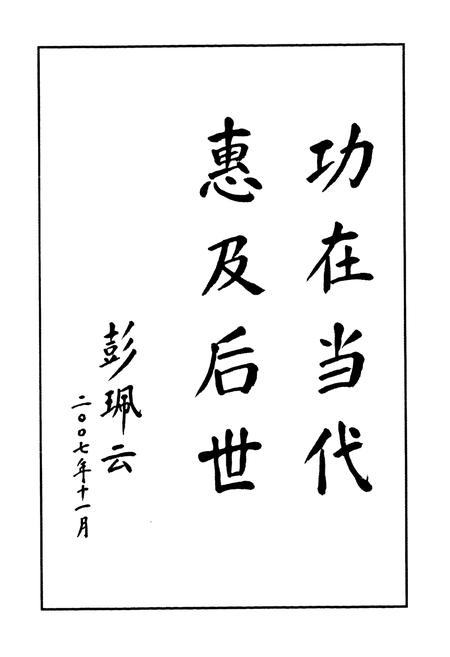 功在当代
惠及后世
彭珮云
二〇〇七年十一月